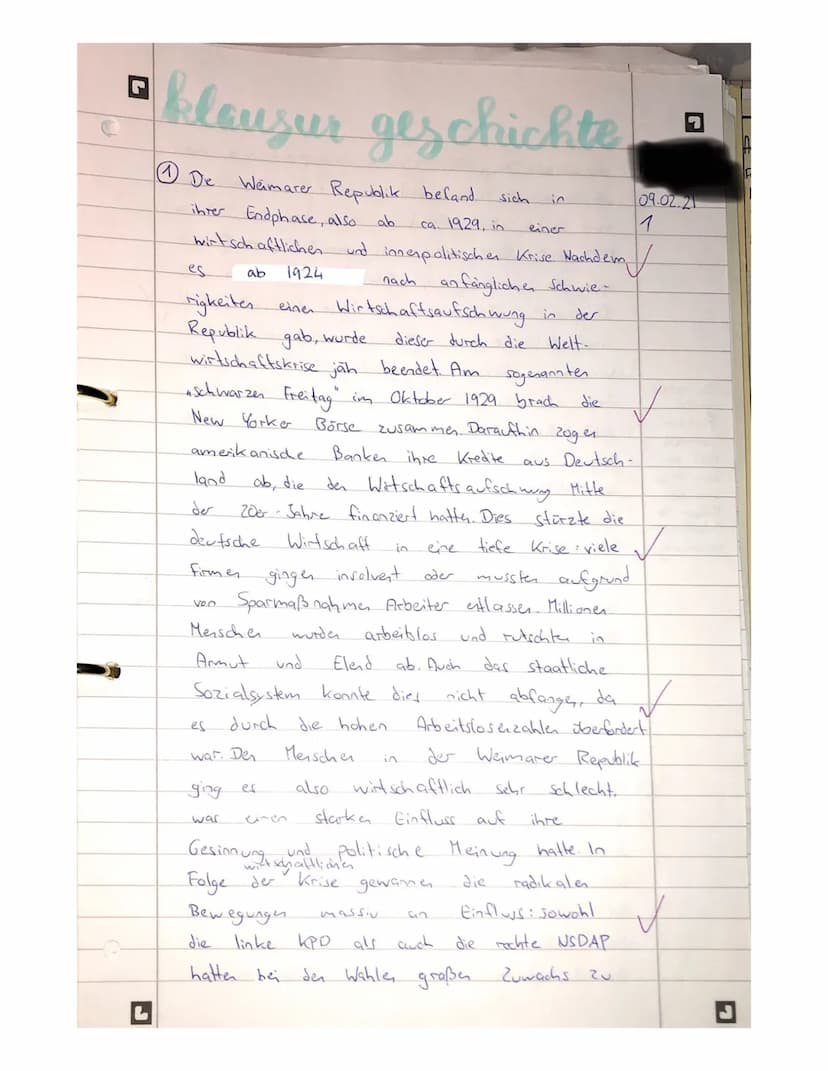 klausur geschichte
09.02.21
1
① Die Weimarer Republik befand sich in
ihrer Endphase, also ab ca. 1929, in einer
wirtschaftlichen und innenpolitischen Krise Nachdem
es ab 1924 nach anfänglichen Schwie-
rigkeiten einen Wirtschaftsaufschwung in der
Republik gab, wurde dieser durch die Welt-
wirtschaftskrise jäh beendet. Am sogenannten
„schwarzen Freitag" im Oktober 1929 brach die
New Yorker Börse zusammen. Daraufhin zogen
amerikanische Banken ihre Kredite aus Deutsch-
land ab, die den Wirtschaftsaufschwung Mitte
der 20er-Jahre finanziert hatten. Dies stürzte die
deutsche Wirtschaft in eine tiefe Krise: viele
Firmen gingen insolvent oder mussten aufgrund
von Sparmaßnahmen Arbeiter entlassen. Millionen
Menschen wurden arbeitslos und rutschten in
Armut und Elend ab. Auch das staatliche
Sozialsystem konnte dies nicht abfangen, da
es durch die hohen Arbeitslosenzahlen überfordert
war. Den Menschen in der Weimarer Republik
ging es also wirtschaftlich sehr schlecht,
was einen starken Einfluss auf ihre
Gesinnung und politische Meinung hatte. In
Folge der wirtschaftlichen Krise gewannen die radikalen
Bewegungen massiv an Einfluss: sowohl
die linke KPD als auch die rechte NSDAP
hatten bei den Wahlen großen Zuwachs zu